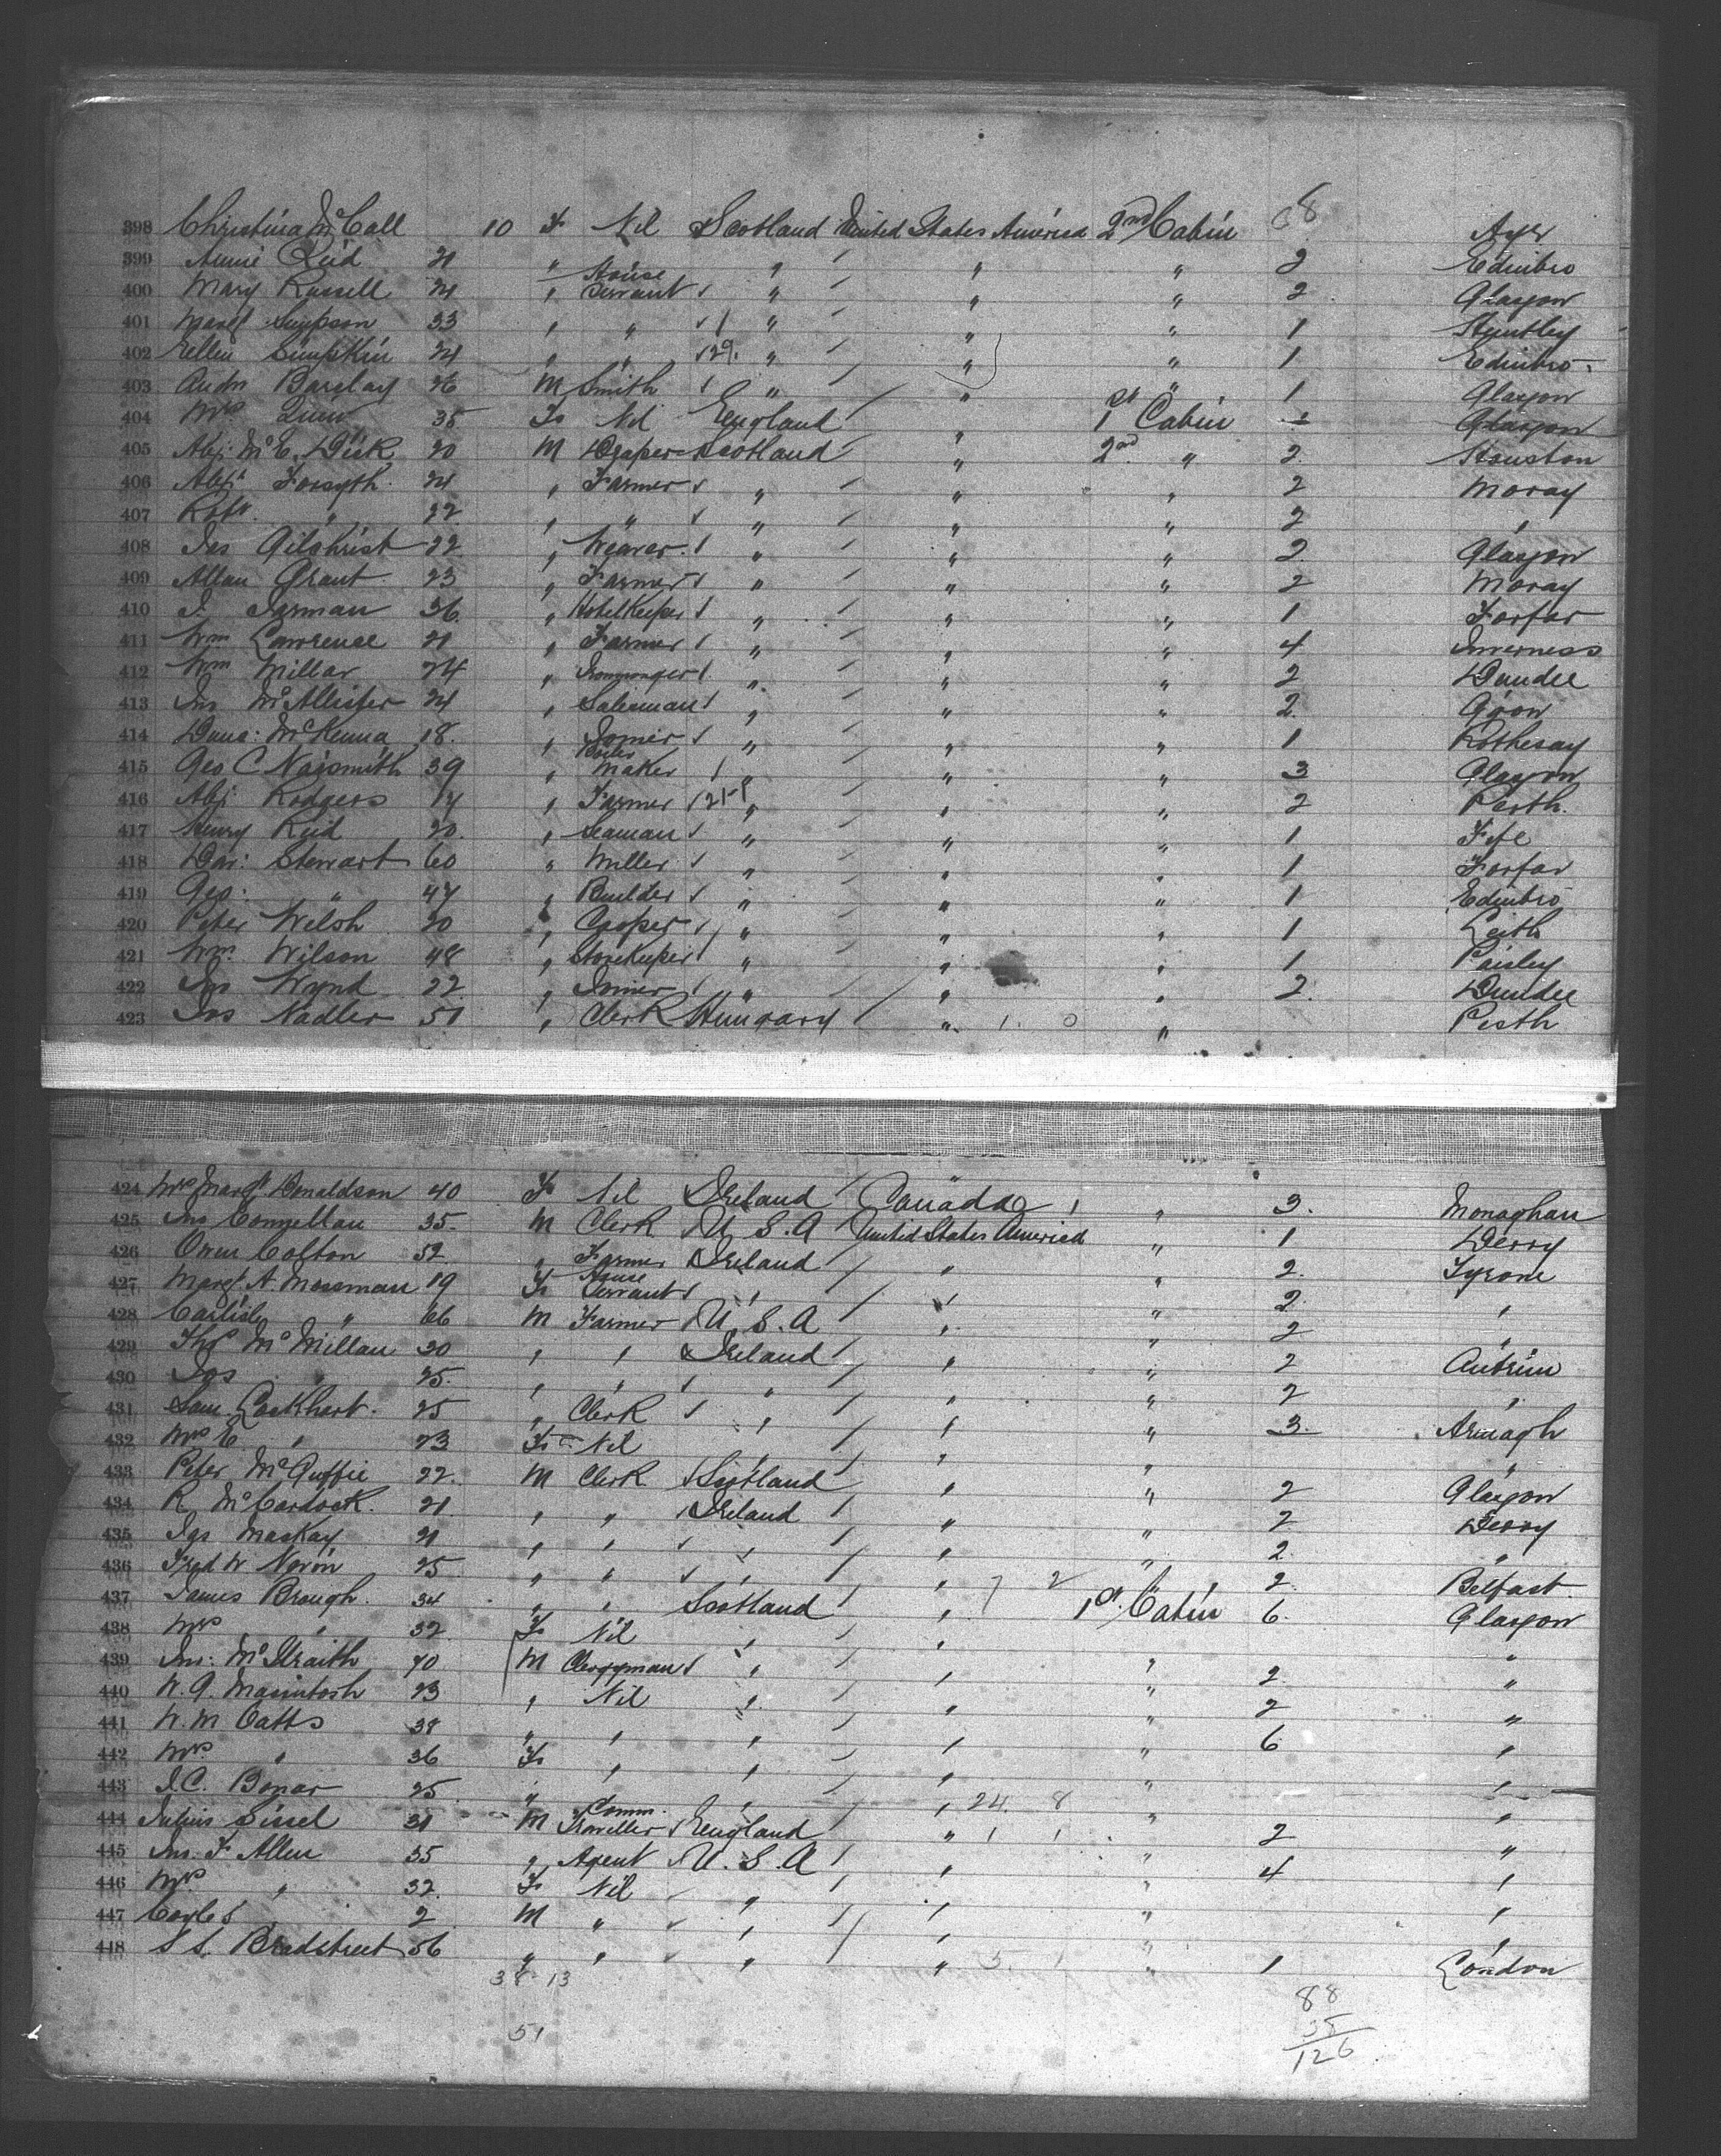 398 Christina McCall 10 F Nil Scotland United States America 2nd Cabin 8 Ayr
399 Annie Reid 21 " " / " " 2 Edinbro
400 Mary Russell 24 , House Servant " / " " 2 Glasgow
401 Margt Simpson 33 , " " / " " 1 Huntley
402 Ellen Simpkin 24 , " 29. " / " " 1 Edinbro
403 Andw Barclay 26 M Smith " / " " 1 Glasgow
404 Mrs 35 F Nil England / " 1st Cabin 1 Glasgow
405 Alex McE. Dick 20 M Scotland / " 2nd " 2 Houston
406 Alexr Forsyth 24 , Farmer " / " " 2 Moray
407 Robt " 22 , " " / " " 2 "
408 Jas Gilchrist 22 , Weaver " / " " 2 Glasgow
409 Allan Grant 23 , Farmer " / " " 2 Moray
410 J. Jarman 36 , Hotel Keeper " / " " 1 Forfar
411 Wm Lawrence 21 , Farmer " / " " 4 Inverness
412 Wm Millar 24 , Ironmonger " / " " 2 Dundee
413 Jno McAllister 24 , Salesman " / " " 2
414 Dunc: McKenna 18 , Joiner " / " " 1 Rothesay
415 Geo C Naismith 39 , Maker " / " " 3 Glasgow
416 Alex Rodgers 17 , Farmer " / " " 2 Perth
417 Henry Reid 20 , Seaman " / " " 1 Fife
418 Dav: Stewart 60 " Miller " / " " 1 Forfar
419 Geo: " 47 , Builder " / " " 1 Edinbro
420 Peter Welsh 20 , Cooper " / " " 1 Leith
421 Wm. Wilson 48 , Storekeeper " / " " 1 Paisley
422 Jas Wynd 22 , Joiner " / " " 2 Dundee
423 Jos Nadler 51 , Clerk Hungary " 1. 0 " Pesth
424 Mrs Margt Donaldson 40 F Nil Ireland / Canada 1 " 3. Monaghan
425 Jno Connellan 35 M Clerk U S. A United States America " 1 Derry
426 Owen Colton 52 " Farmer Ireland / " " 2. Tyrone
427 Margt. A. Mossman 19 F House Servant , / " " 2 ,
428 Carlisle " 66 M Farmer U. S. A / " " 2 "
429 Thos McMillan 20 , , Ireland / " " 2 Antrim
430 Jas " 25 , , " / " " 2 ,
431 Sam. Lockhart 25 " Clerk , / " " 3. Armagh
432 Mrs E. , 23 F Nil , / " " "
433 Peter McGuffie 22 M Clerk Scotland / " " 2 Glasgow
434 R. 21 , " Ireland / " " 2 Derry
435 Jas Mackay 21 , , , / " " 2. "
436 Fred W 25 " " , / " 2 " 2. Belfast
437 James Brough 34 , " Scotland / " 1st Cabin 6. Glasgow
438 Mrs , 32 F Nil , / "
439 Jno: McIlraith 40 M Clergyman , / " " 2. "
440 W. G. Macintosh 23 , Nil , / " " 2 "
441 W. M Oatts 38 " , , / " " 6 ,
442 Mrs , 36 F , , / " "
443 J. C. Bonar 25 " , , / , 24. 8 " "
444 Julius Sissel 31 M Comm. Traveller England / " 1 1 " 2 "
445 Jno. F Allen 35 " Agent U. S. A / " " 4 ,
446 Mrs , 32 F Nil " / " " ,
447 2 M " , / " " ,
448 S S. Bradstreet 56 " , , " 3. 1 " 1 London
38 13
51
88
38
126